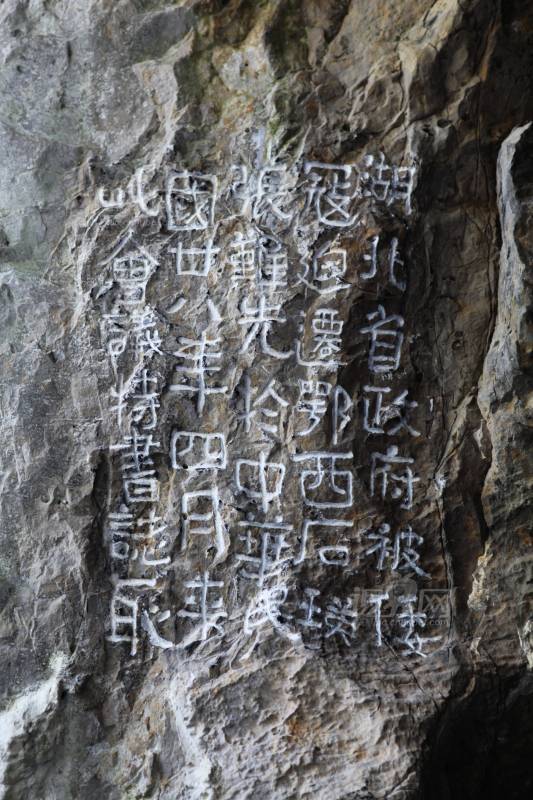 湖北省政府被倭
寇迫遷鄂西石瑛
張難先於中華民
國廿八年四月来
此會議特書誌恥